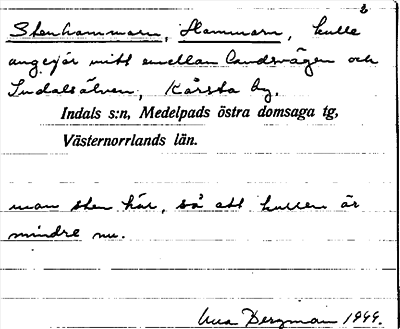 2
Stenhammarn, Hammarn, kulle
ungefär mitt emellan landsvägen och
Indalsälven, Kårsta by.
Indals s:n, Medelpads östra domsaga tg,
Västernorrlands län.
man sten här, så att kullen är
mindre nu.
Bergman 1944.